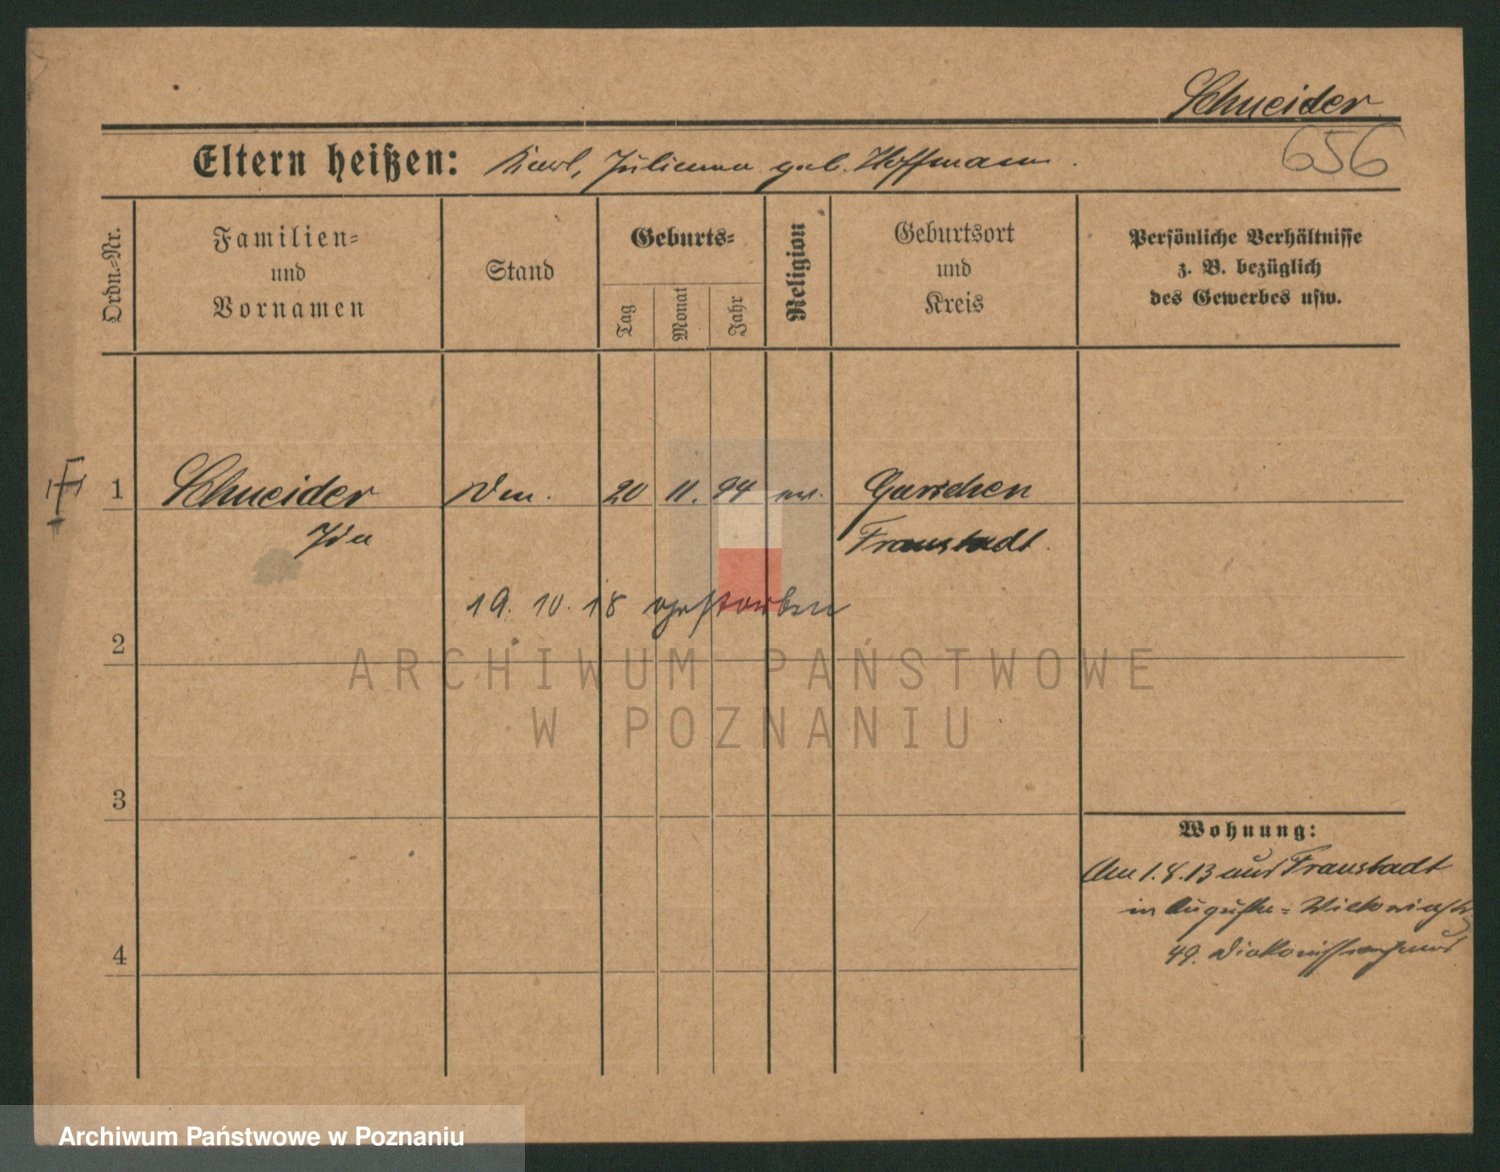 Schneider
656
Eltern heißen: Karl, Julianna geb. Hoffmann.
Ordn.-Nr.
Familien-
und
Vornamen
Stand
Geburts-
Tag
Monat
Jahr
Religion
Geburtsort
und
Kreis
Persönliche Verhältnisse
z. B. bezüglich
des Gewerbes usw.
1 Schneider 20 11. 94 ev.
Ida Fraustadt.
19. 10. 18 gestorben
2
ARCHIWUM PAŃSTWOWE
W POZNANIU
3
Wohnung:
Am 1.8.13 aus Fraustadt
in Auguste-Viktoriastr
49. Diakonissenhaus
4
Archiwum Państwowe w Poznaniu